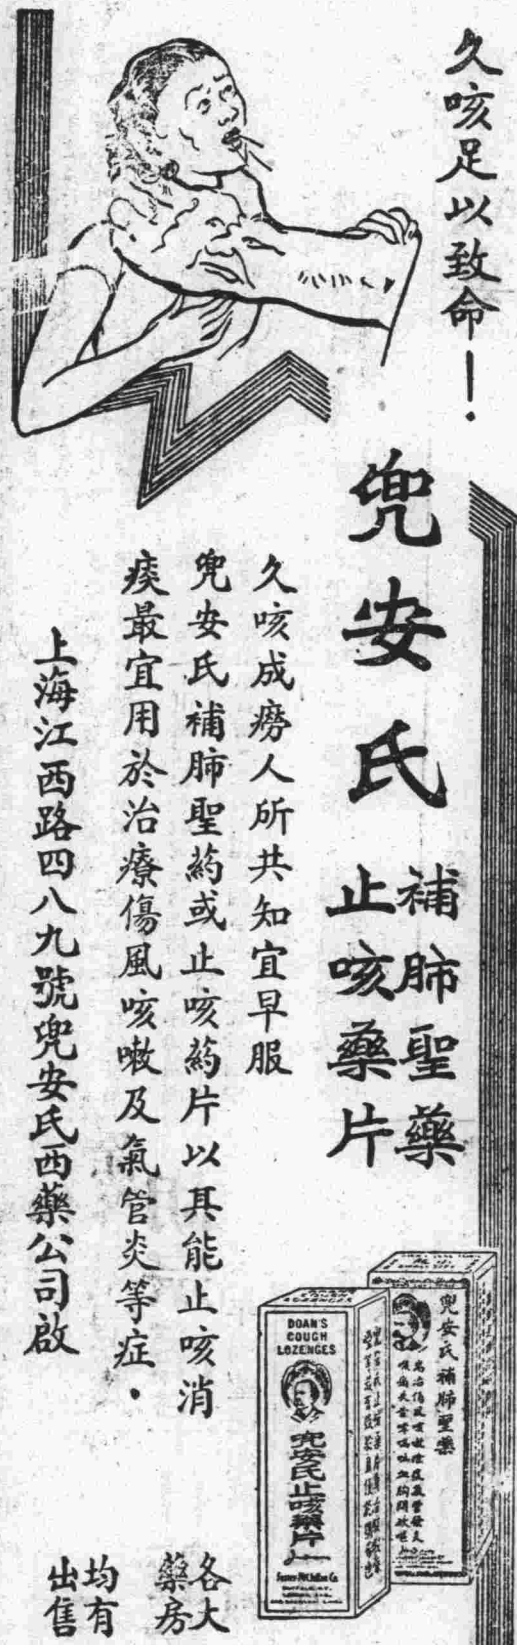 久咳足以致命！
兜安氏
補肺聖藥
止咳藥片
久咳成癆人所共知宜早服
兜安氏補肺聖葯或止咳葯片以其能止咳消
痰最宜用於治療傷風咳嗽及氣管炎等症．
上海江西路四八九號兜安氏西藥公司啟
兜安氏補肺聖藥
DOAN'S
COUGH
LOZENGES
兜安氏止咳藥片
Foster-McClellan Co
各大
藥房
均有
出售